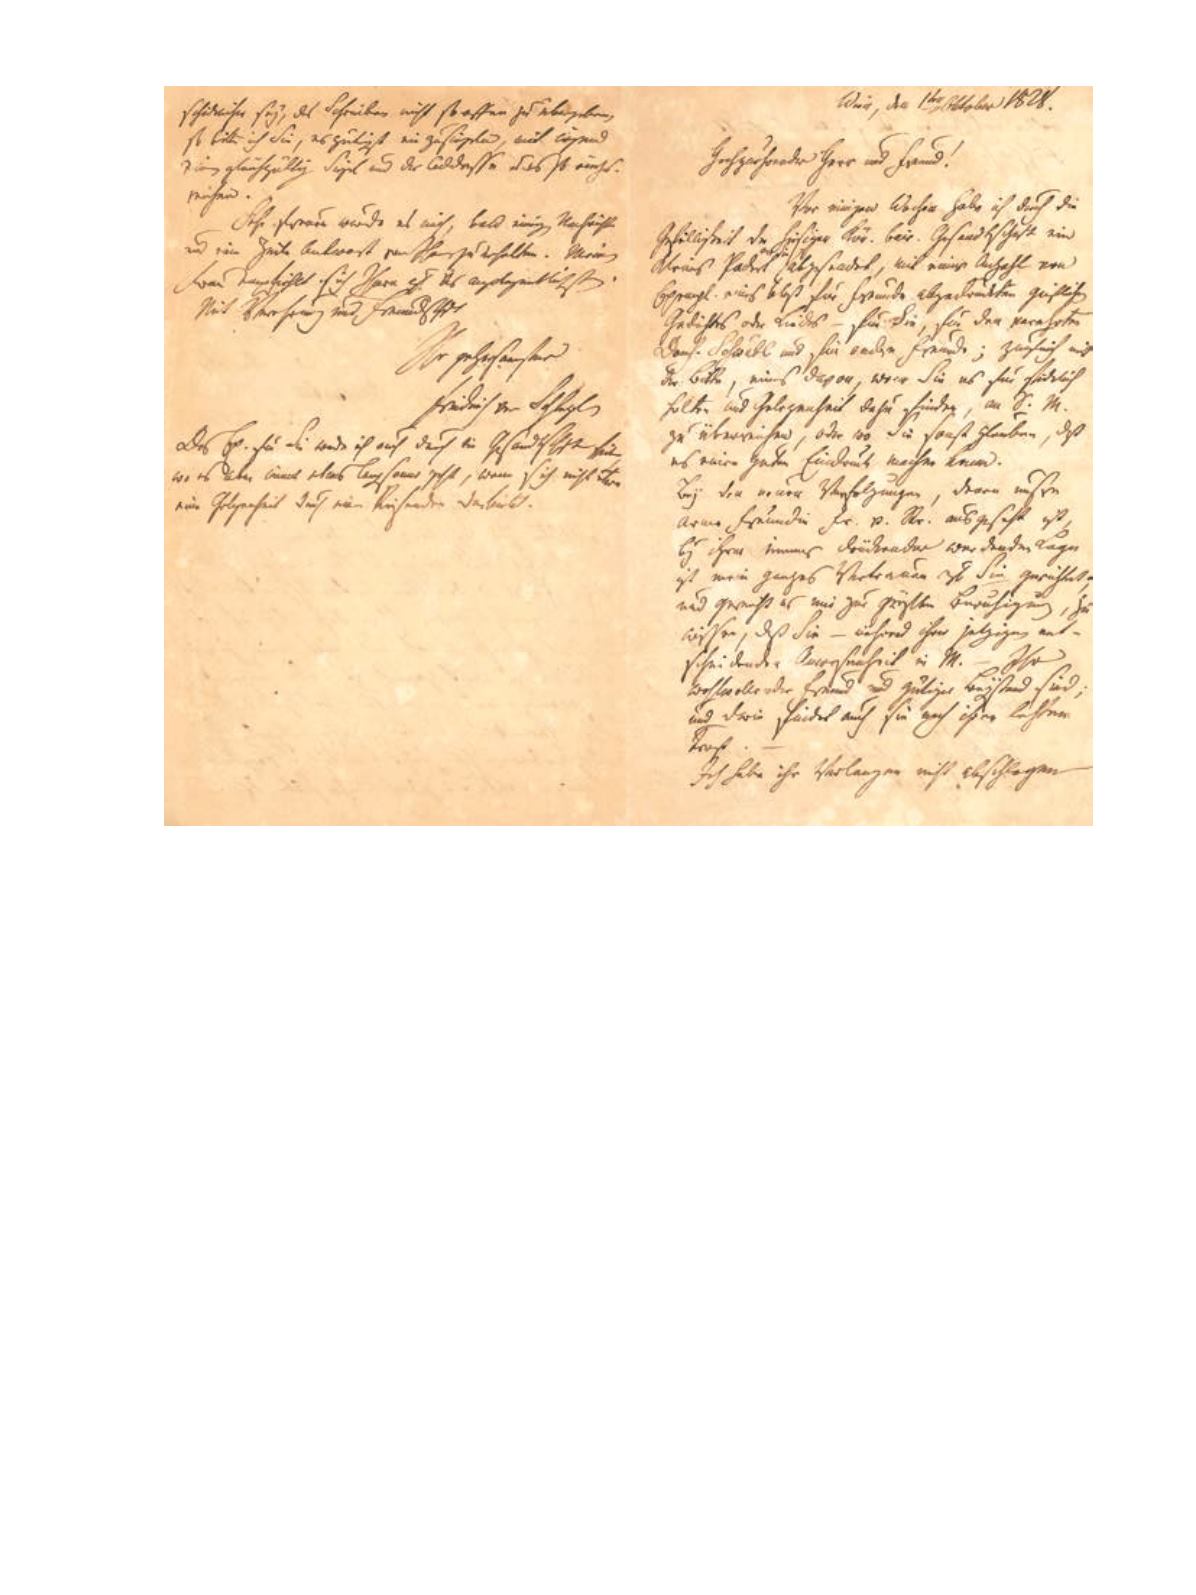 Wien, den 1ten Oktober 1828.
Hochzuehrender Herr und Freund!
Vor einigen Wochen habe ich durch die
Gefälligkeit der hiesigen Kön. bair. Gesandtschaft ein
kleines Packet abgesendet, mit einer Anzahl von
Exempl. eines bloß für Freunde abgedruckten geistlichen
Gedichtes oder Liedes – für Sie, für den verehrten
Domh. Schwäbl und für andre Freunde; zugleich mit
der Bitte, eines davon, wenn Sie es für schicklich
halten und Gelegenheit dazu finden, an S. M.
zu überreichen, oder wo Sie sonst glauben, daß
es einen guten Eindruck machen kann.
Bey den neuen Verfolgungen, denen unsre
arme Freundin Fr. v. Str. ausgesetzt ist,
bey ihrer immer drückender werdenden Lage
ist mein ganzes Vertrauen auf Sie gerichtet,
und gereicht es mir zur größten Beruhigung, zu
wissen, daß Sie – während ihrer jetzigen ent-
scheidenden Anwesenheit in M. – Ihr
wohlwollender Freund und gütiger Beystand sind;
und darin findet auch sie noch ihren besten
Trost. –
Ich habe ihr Verlangen nicht abschlagen
schicklicher sey, das Schreiben nicht so offen zu übergeben,
so bitte ich Sie, es gütigst einzusiegeln, mit irgend
einem gleichgültigen Siegel und der Addresse es so einzu-
reichen.
Sehr freuen würde es mich, bald einige Nachricht
und eine Zeile Antwort von Ihnen zu erhalten. Meine
Frau empfiehlt sich Ihnen auf das angelegentlichste.
Mit Verehrung und Freundschaft
Ihr gehorsamster
Friedrich von Schlegel
Das Ex. für Sie werde ich auch durch die Gesandtschaft
wo es aber immer etwas langsamer geht, wenn sich nicht
eine Gelegenheit durch einen Reisenden darbietet.